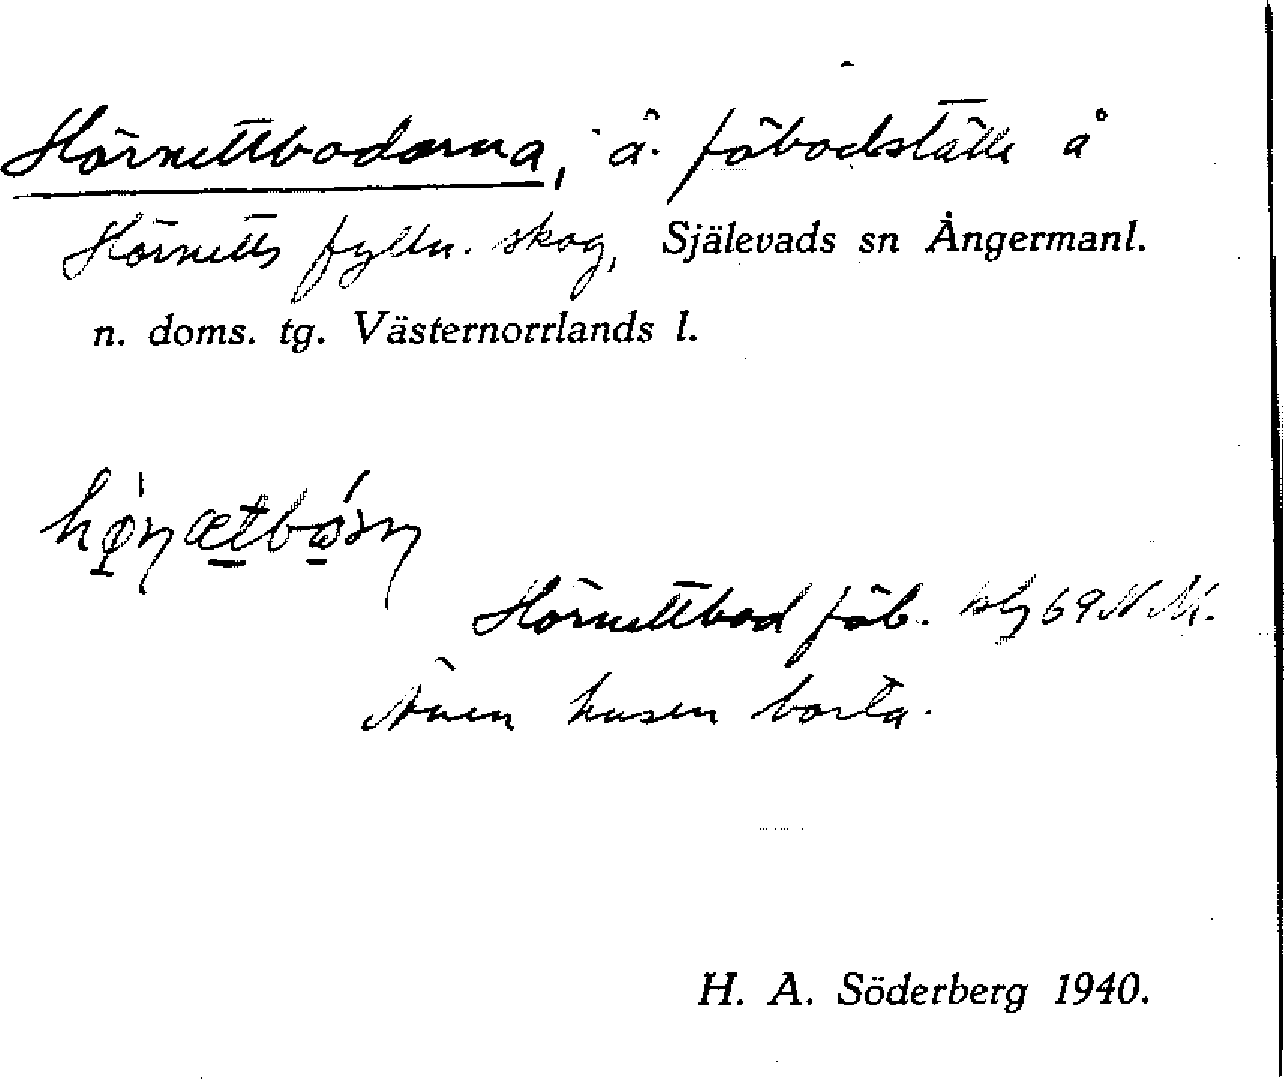 Hörnettbodarna, ä. fäbodställe å
Hörnetts fylln. skog, Själevads sn Ångermanl.
n. doms. tg. Västernorrlands l.
Hörnettbod fäb. 69 N M.
Även husen borta.
H. A. Söderberg 1940.